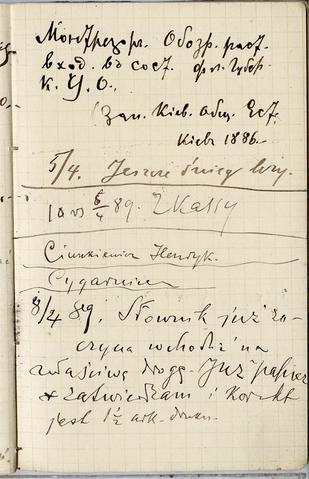 Монтрезор. Обозр. раст.
вход. въ сост. фл. губер.
К. У. О.,
(Зап. Кiев. Общ. Ест.
Кiевъ 1886.
5/4. Jeszcze śnieg leży.
10 rs 6/4 89. z Kassy
Cionkiewicz Henryk.
Cygarnica
8/4 89. Słownik już za-
czyna wchodzić na
właściwą drogę. Już papier
zatwierdzam i korekt
jest 1½ ark. druku.